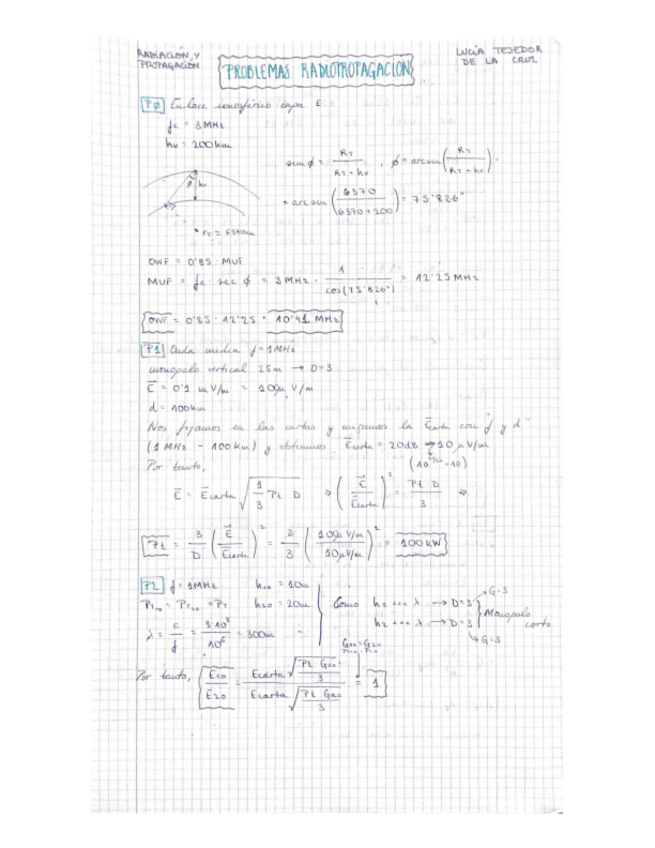 RADIACIÓN Y
PROPAGACIÓN
PROBLEMAS RADIOPROPAGACIÓN
LUCÍA TEJEDOR
DE LA CRUZ
P0 Enlace ionosférico capa E
fc = 3 MHz
hv = 200 km
sen ϕ = RT / (RT + hv) , ϕ = arcsen (RT / (RT + hv)) =
= arcsen (6370 / (6370 + 200)) = 75'826°
ϕ hv
RT = 6370km
OWF = 0'85 · MUF
MUF = fc · sec ϕ = 3 MHz · 1 / cos(75'826°) = 12'25 MHz
OWF = 0'85 · 12'25 = 10'41 MHz
P1 Onda media f = 1MHz
monopolo vertical 25m → D=3
E = 0'1 mV/m = 100μ V/m
d = 100km
Nos fijamos en las cartas y miramos la Ecarta con f y d
(1 MHz - 100km) y obtenemos Ecarta = 20dB → 10 μV/m
(10^20/20 = 10)
Por tanto,
E = Ecarta √(1/3 Pt D) ⇒ (E / Ecarta)² = Pt D / 3 ⇒
Pt = 3/D (E / Ecarta)² = 3/3 (100μV/m / 10μV/m)² = 100 kW
P2 f = 1MHz h10 = 10m
PT10 = PT20 = PT h20 = 20m
λ = c/f = 3·10⁸ / 10⁶ = 300m
Como h1 <<< λ → D=3 → G=3
h2 <<< λ → D=3 → G=3
Monopolo corto
G10 = G20
PT10 = PT20
Por tanto, E10 / E20 = Ecarta √(Pt G10 / 3) / Ecarta √(Pt G20 / 3) = 1